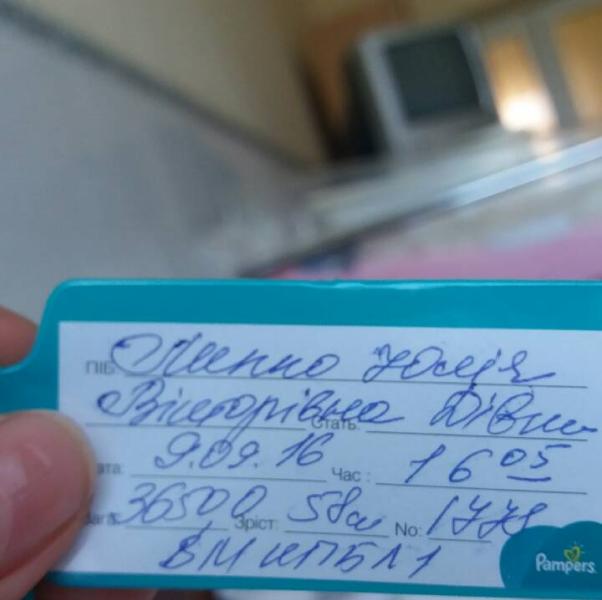 ПІБ Липко Юлія
Вікторівна Стать: Дівч
ата: 9.09.16 Час: 16 05
ага: 36500 Зріст: 58см No: 1778
ВМКПБЛ1
Pampers